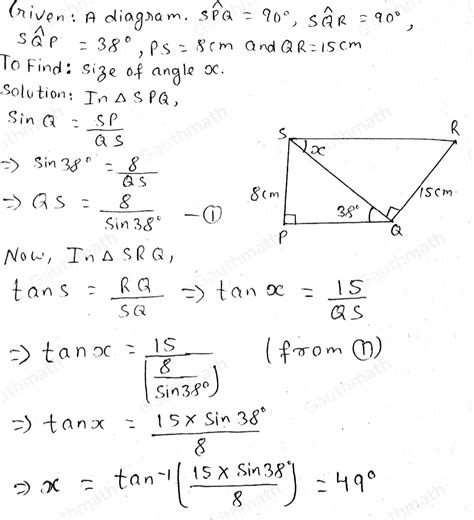 Given: A diagram. SP̂Q = 90°, SQ̂R = 90°,
SQ̂P = 38°, PS = 8cm and QR=15cm
To Find: size of angle x.
Solution: In △ SPQ,
Sin Q = SP/QS
⇒ sin38° = 8/QS
⇒ QS = 8/Sin38° —①
S
R
x
8cm
38°
15cm
P
Q
Now, In △ SRQ,
tan S = RQ/SQ ⇒ tan x = 15/QS
⇒ tan x = 15/(8/Sin38°) (from ①)
⇒ tan x = 15 × Sin 38°/8
⇒ x = tan⁻¹(15 × Sin38°/8) = 49°
Gauthmath